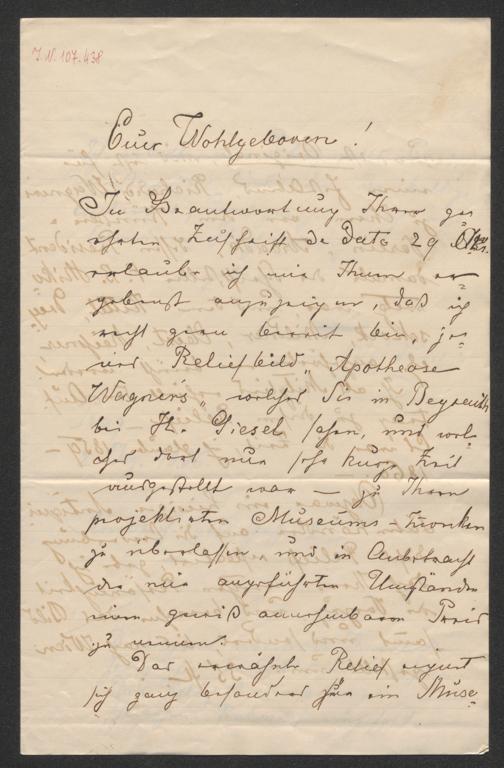 J. N. 107.438
Eur Wohlgeboren!
In Beantwortung Ihrer ge¬
ehrten Zuschrift de Dato 29
erlaube ich mir Ihnen er
gebenst anzuzeigen, daß ich
recht gern bereit bin, je¬
nes Reliefbild „Apotheose
Wagner's„ welches Sie in Beyreuth
bei H. Giesel sahen, und wel¬
ches dort nur sehr kurze Zeit
ausgestellt war — zu Ihrem
projektirten Museums-Zwecken
zu überlassen und in Anbetracht
der mir angeführten Umstände
einen gewiß annehmbaren Preis
zu nennen.
Das erwähnte Relief eignet
sich ganz besonders für ein Muse¬